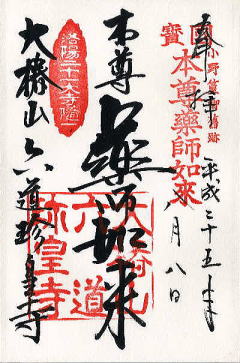 奉拝
平成二十五年
八月八日
小野篁卿舊跡
國寶
本尊藥師如來
本尊
薬師如来
大椿山
六道
珍皇寺
大椿山 六道珍皇寺